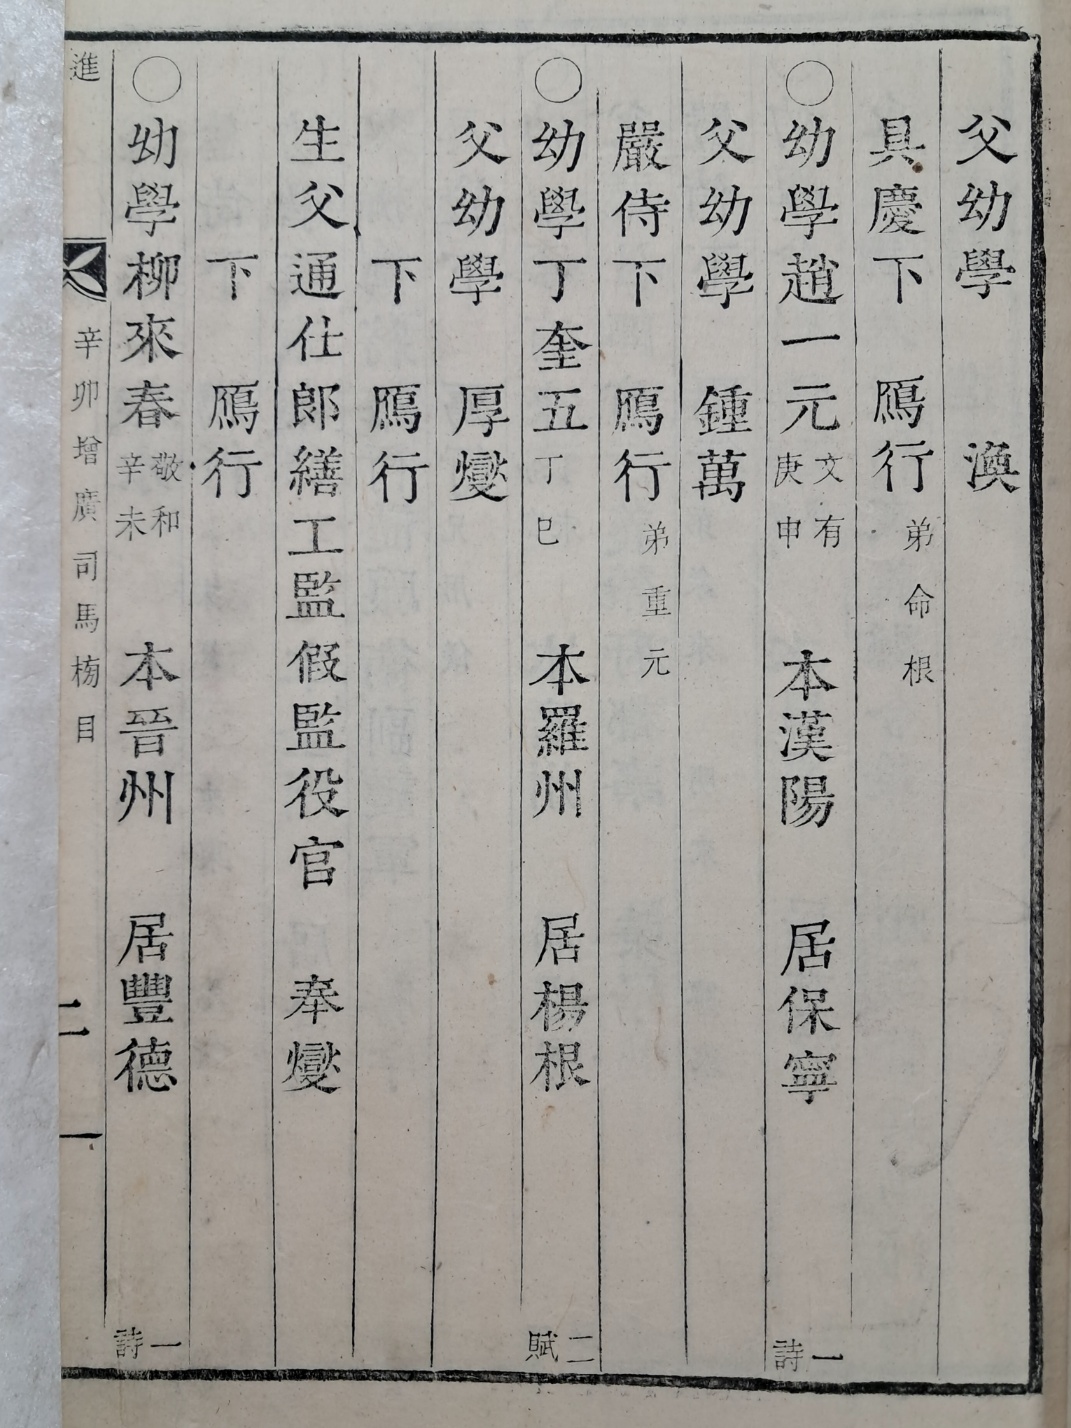 父幼學 渙
具慶下 鴈行 弟命根
〇幼學趙一元 文有 庚申 本漢陽 居保寧 一詩
父幼學 鍾萬
嚴侍下 鴈行 弟重元
〇幼學丁奎五 丁巳 本羅州 居楊根 二賦
父幼學 厚燮
下 鴈行
生父通仕郎繕工監假監役官 奉燮
下 鴈行
〇幼學柳來春 敬和 辛未 本晉州 居豐德 一詩
進 辛卯增廣司馬榜目 二一